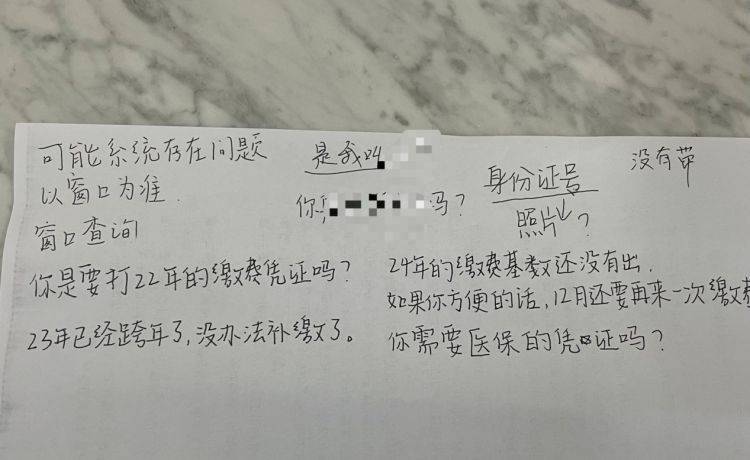 可能系统存在问题
以窗口为准.
窗口查询
你是要打22年的缴费凭证吗?
23年已经跨年了,没办法补缴了。
是我叫
你 吗?
身份证号
照片?
没有带
24年的缴费基数还没有出.
如果你方便的话,12月还要再来一次缴费
你需要医保的凭证吗?